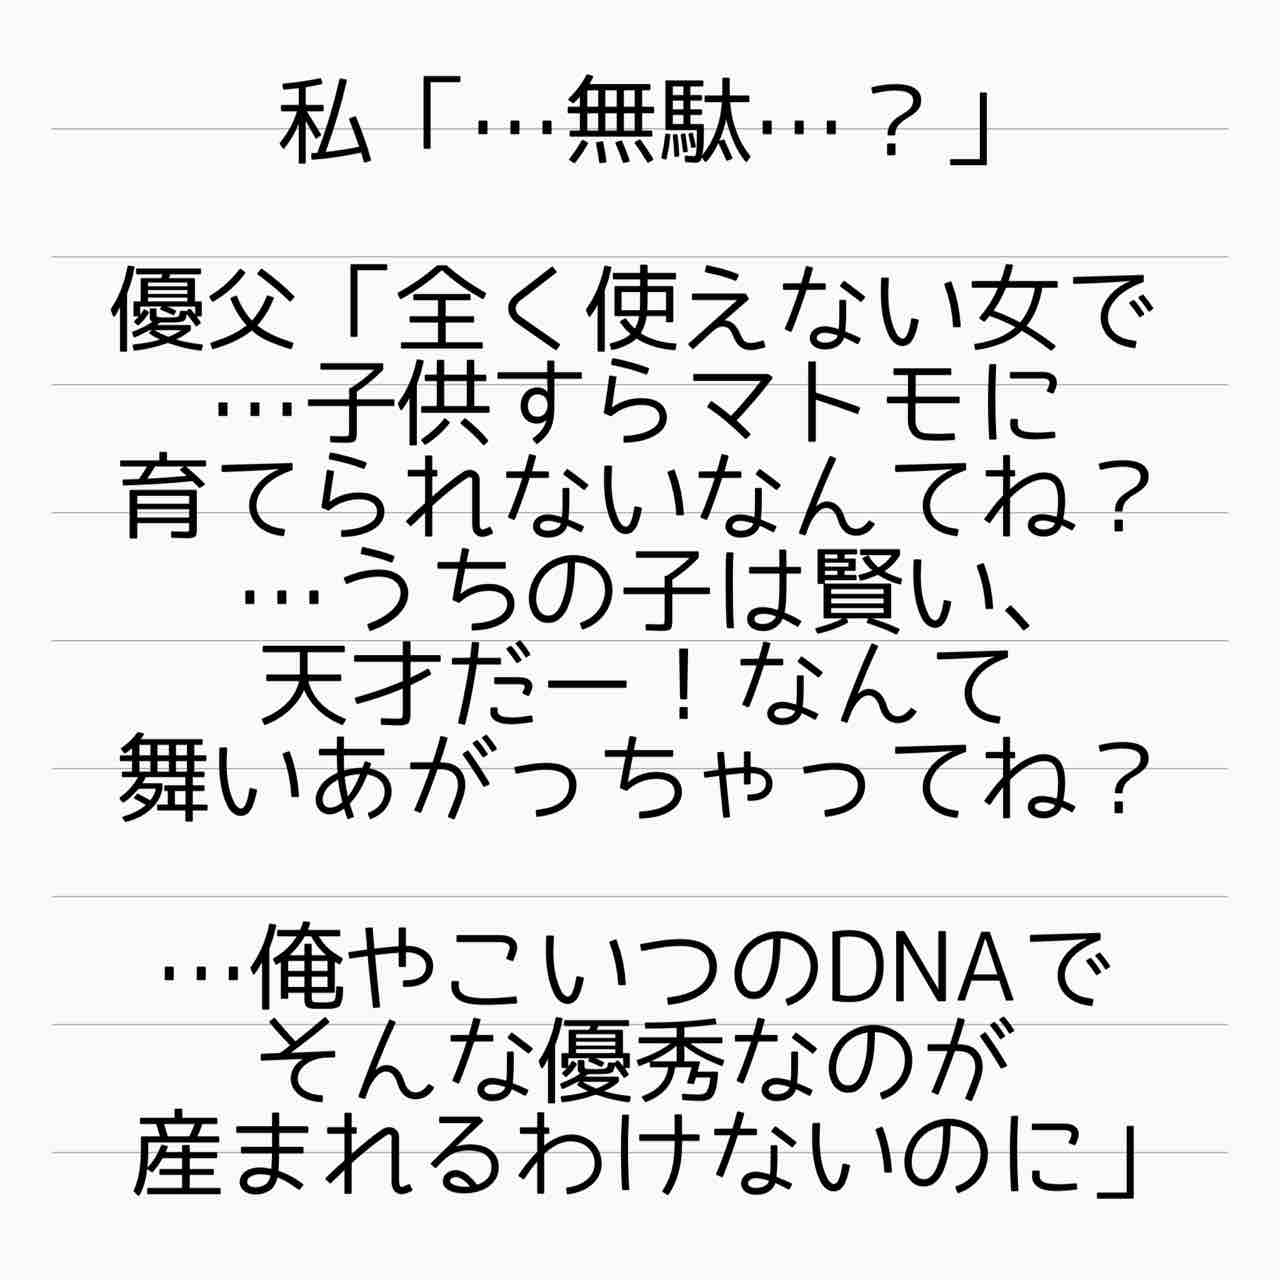 私「…無駄…？」
優父「全く使えない女で
…子供すらマトモに
育てられないなんてね？
…うちの子は賢い、
天才だー！なんて
舞いあがっちゃってね？
…俺やこいつのDNAで
そんな優秀なのが
産まれるわけないのに」